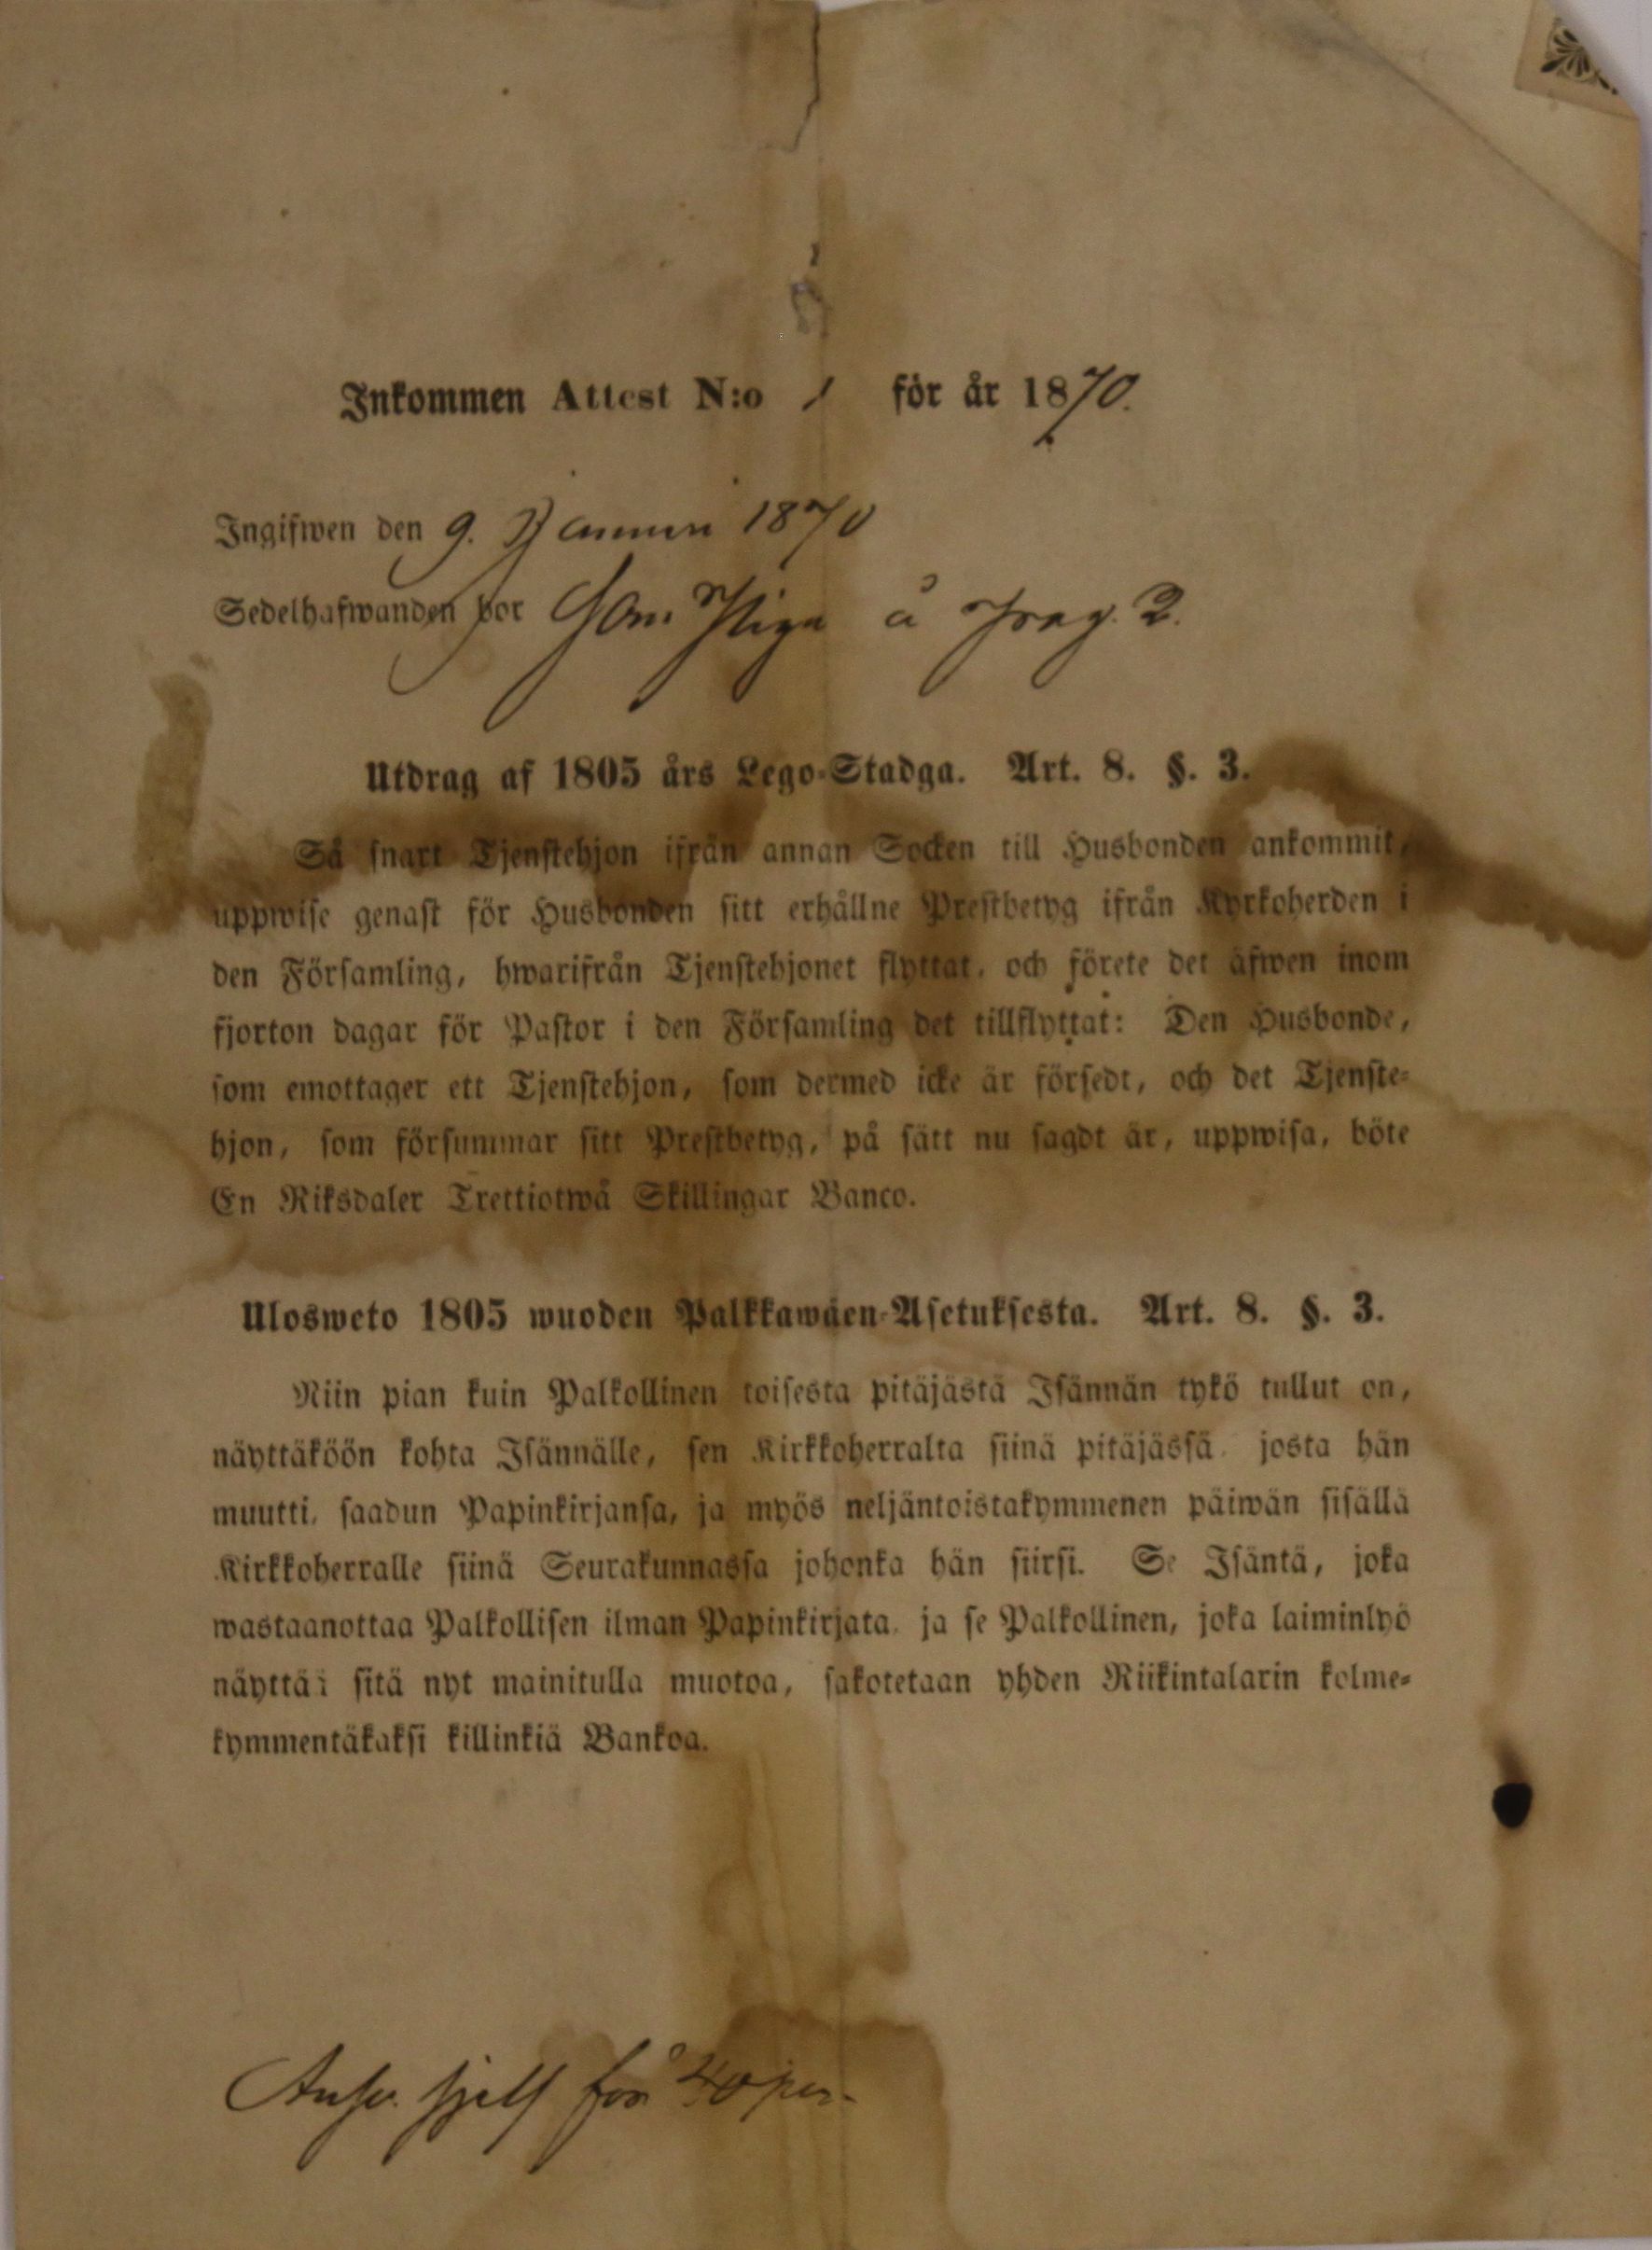 Inkommen Attest N:o 1 för år 1870.
Ingifwen den 9. Januari 1870
Sedelhafwanden bor som Piga å 2.
Utdrag af 1805 års Lego-Stadga. Art. 8. §. 3.
Så snart Tjenstehjon ifrån annan Socken till Husbonden ankommit,
uppwise genast för Husbonden sitt erhållne Prestbetyg ifrån Kyrkoherden i
den Församling, hwarifrån Tjenstehjonet flyttat, och förete det äfwen inom
fjorton dagar för Pastor i den Församling det tillflyttat: Den Husbonde,
som emottager ett Tjenstehjon, som dermed icke är försedt, och det Tjenste-
hjon, som försummar sitt Prestbetyg, på sätt nu sagdt är, uppwisa, böte
En Riksdaler Trettiotwå Skillingar Banco.
Ulosweto 1805 wuoden Palkkawäen-Asetuksesta. Art. 8. §. 3.
Niin pian kuin Palkollinen toisesta pitäjästä Isännän tykö tullut on,
näyttäköön kohta Isännälle, sen Kirkkoherralta siinä pitäjässä josta hän
muutti, saadun Papinkirjansa, ja myös neljäntoistakymmenen päiwän sisällä
Kirkkoherralle siinä Seurakunnassa johonka hän siirsi. Se Isäntä, joka
wastaanottaa Palkollisen ilman Papinkirjata, ja se Palkollinen, joka laiminlyö
näyttää sitä nyt mainitulla muotoa, sakotetaan yhden Riikintalarin kolme-
kymmentäkaksi killinkiä Bankoa.
sjelf för 40